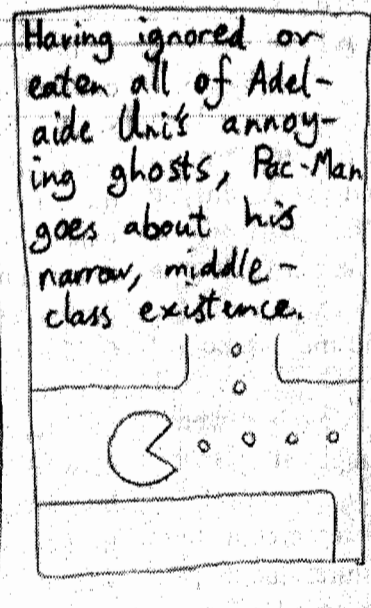 Having ignored or
eaten all of Adel-
aide Uni's annoy-
ing ghosts, Pac-Man
goes about his
narrow, middle-
class existence.